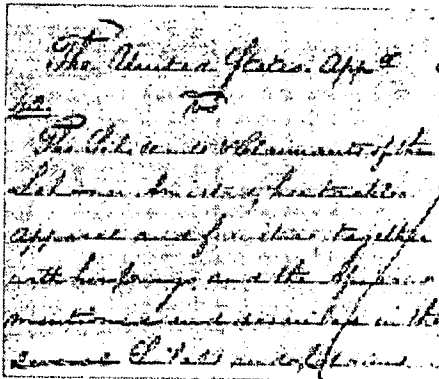 The United States. App^t
42.
vs
The Libellants & Claimants of the
Schooner Amistad, her tackle
apparel and furniture, together
with her cargo, and the Africans
mentioned and described in the
several Libels and Claims